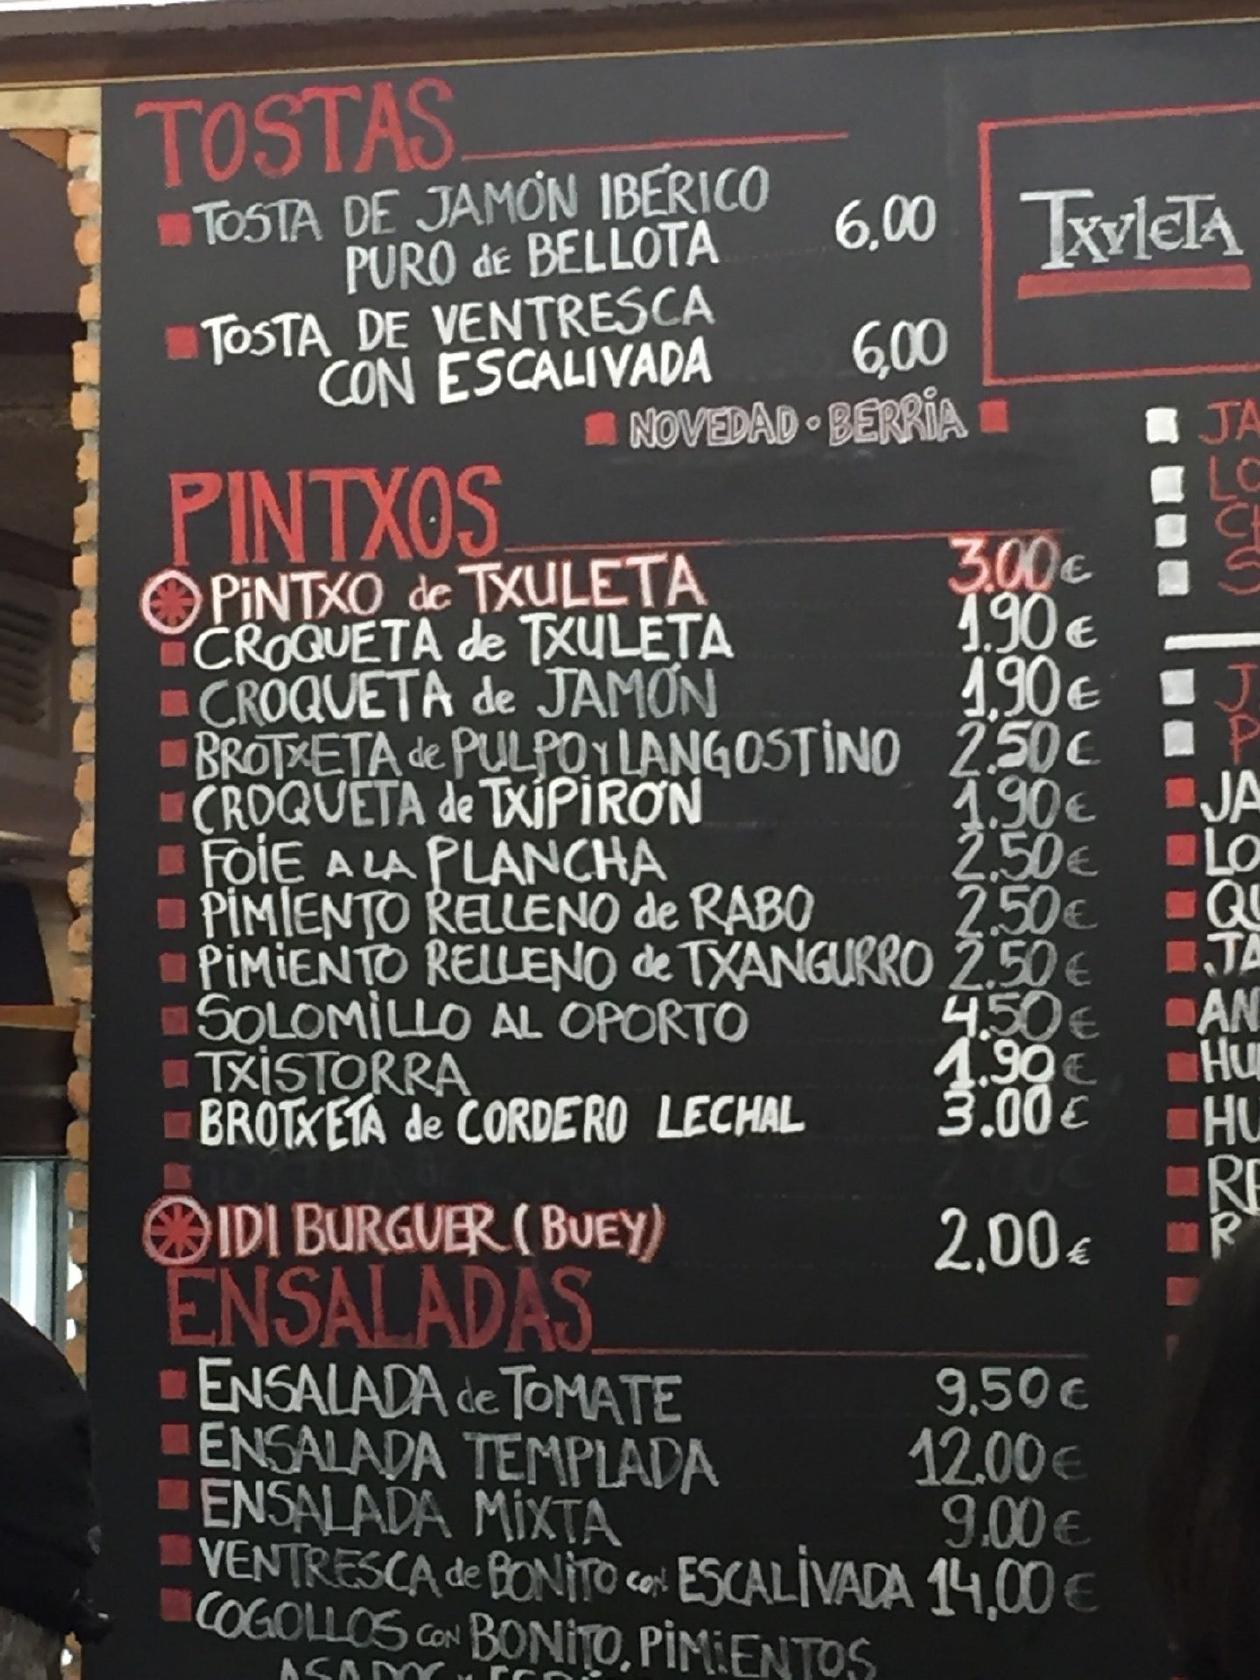 TOSTAS
TOSTA DE JAMÓN IBÉRICO
PURO de BELLOTA 6,00
TOSTA DE VENTRESCA
CON ESCALIVADA 6,00
NOVEDAD · BERRIA
PINTXOS
PINTXO de TXULETA 3.00€
CROQUETA de TXULETA 1.90€
CROQUETA de JAMÓN 1,90€
BROTXETA de PULPO Y LANGOSTINO 2.50€
CROQUETA de TXIPIRÓN 1.90€
FOIE A LA PLANCHA 2.50€
PIMIENTO RELLENO de RABO 2.50€
PIMIENTO RELLENO de TXANGURRO 2.50€
SOLOMILLO AL OPORTO 4.50€
TXISTORRA 1.90€
BROTXETA de CORDERO LECHAL 3.00€
IDI BURGUER (BUEY) 2,00€
ENSALADAS
ENSALADA de TOMATE 9,50€
ENSALADA TEMPLADA 12,00€
ENSALADA MIXTA 9,00€
VENTRESCA de BONITO CON ESCALIVADA 14,00€
COGOLLOS CON BONITO, PIMIENTOS
TXULETA
JA
LO
S
J
P
JA
LO
QU
JA
AN
HU
HU
RE
R